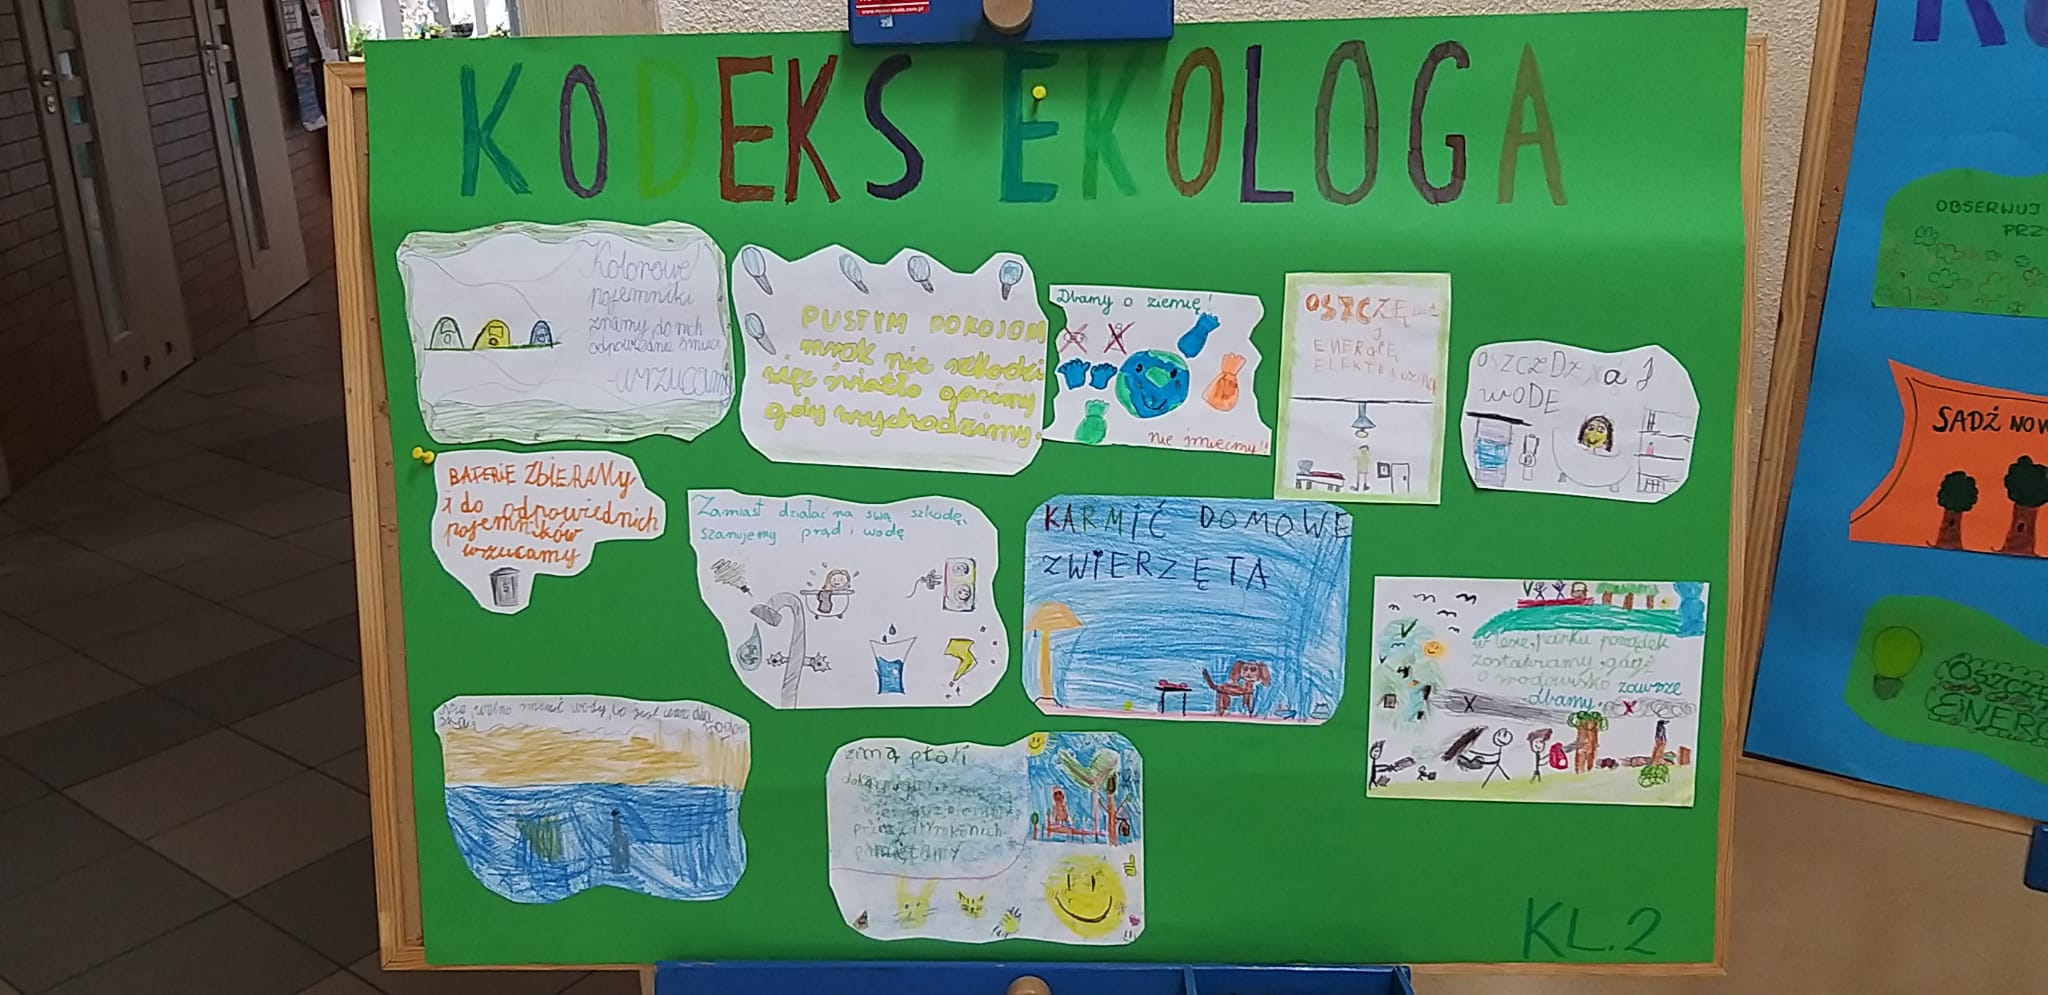 KODEKS EKOLOGA
Kolorowe
pojemniki
znamy do nich
odpowiednie śmieci
wrzucamy
PUSTYM POKOJOM
mrok nie szkodzi
więc światło gasimy
gdy wychodzimy.
Dbamy o ziemię!
nie śmiecmy!!
OSZCZĘ
J
ENERGIĘ
ELEKTRYCZNĄ
OSZCZĘDZAJ
WODĘ
BATERIE ZBIERAMY
i do odpowiednich
pojemników
wrzucamy
Zamiast działać na swą szkodę,
szanujemy prąd i wodę
KARMIĆ DOMOWE
ZWIERZĘTA
w lesie, parku porządek
zostawiamy, gdyż
o środowisko zawsze
dbamy.
zimą ptaki
pamiętamy
KL.2
OBSERWUJ
PRZ
SADŹ NOW
OSZCZĘ
ENERG